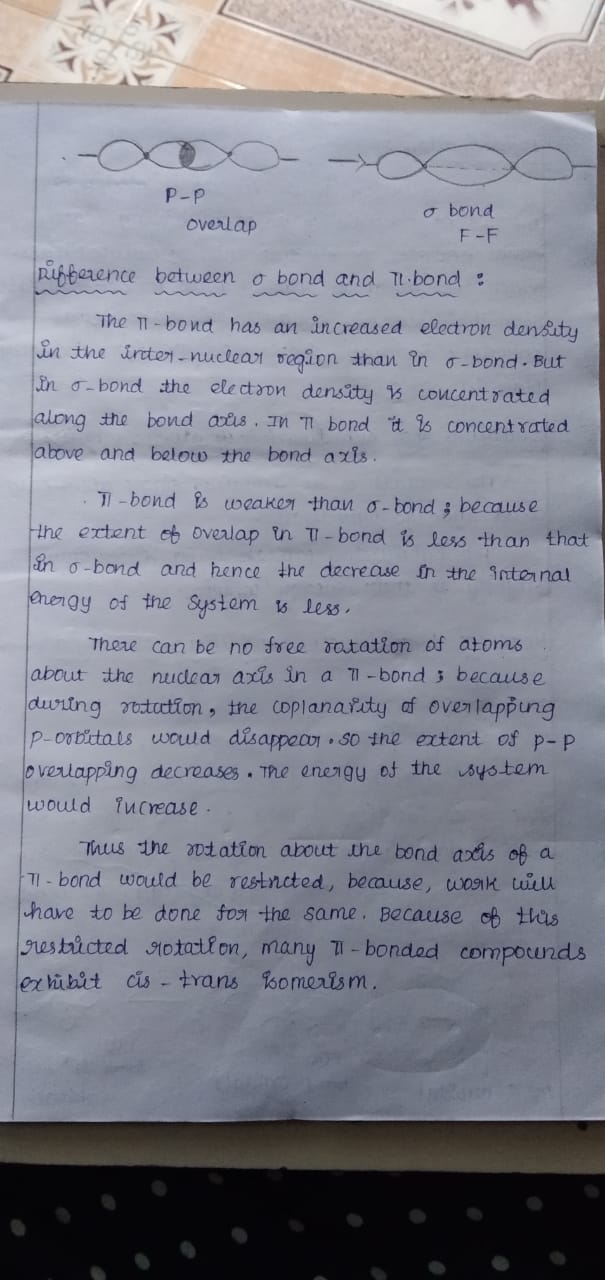 P-P
overlap
σ bond
F-F
Difference between σ bond and π-bond :
The π-bond has an increased electron density
in the inter-nuclear region than in σ-bond. But
in σ-bond the electron density is concentrated
along the bond axis. In π bond it is concentrated
above and below the bond axis.
π-bond is weaker than σ-bond ; because
the extent of overlap in π-bond is less than that
in σ-bond and hence the decrease in the internal
energy of the system is less.
There can be no free rotation of atoms
about the nuclear axis in a π-bond ; because
during rotation, the coplanarity of overlapping
p-orbitals would disappear. so the extent of p-p
overlapping decreases. The energy of the system
would increase.
Thus the rotation about the bond axis of a
π-bond would be restricted, because, work will
have to be done for the same. Because of this
restricted rotation, many π-bonded compounds
exhibit cis-trans isomerism.